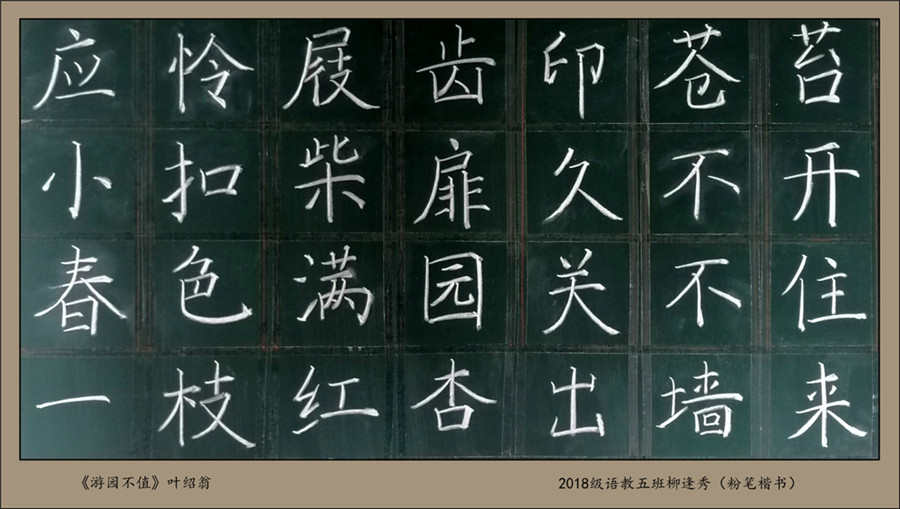 应怜屐齿印苍苔
小扣柴扉久不开
春色满园关不住
一枝红杏出墙来
《游园不值》叶绍翁
2018级语教五班柳逢秀（粉笔楷书）